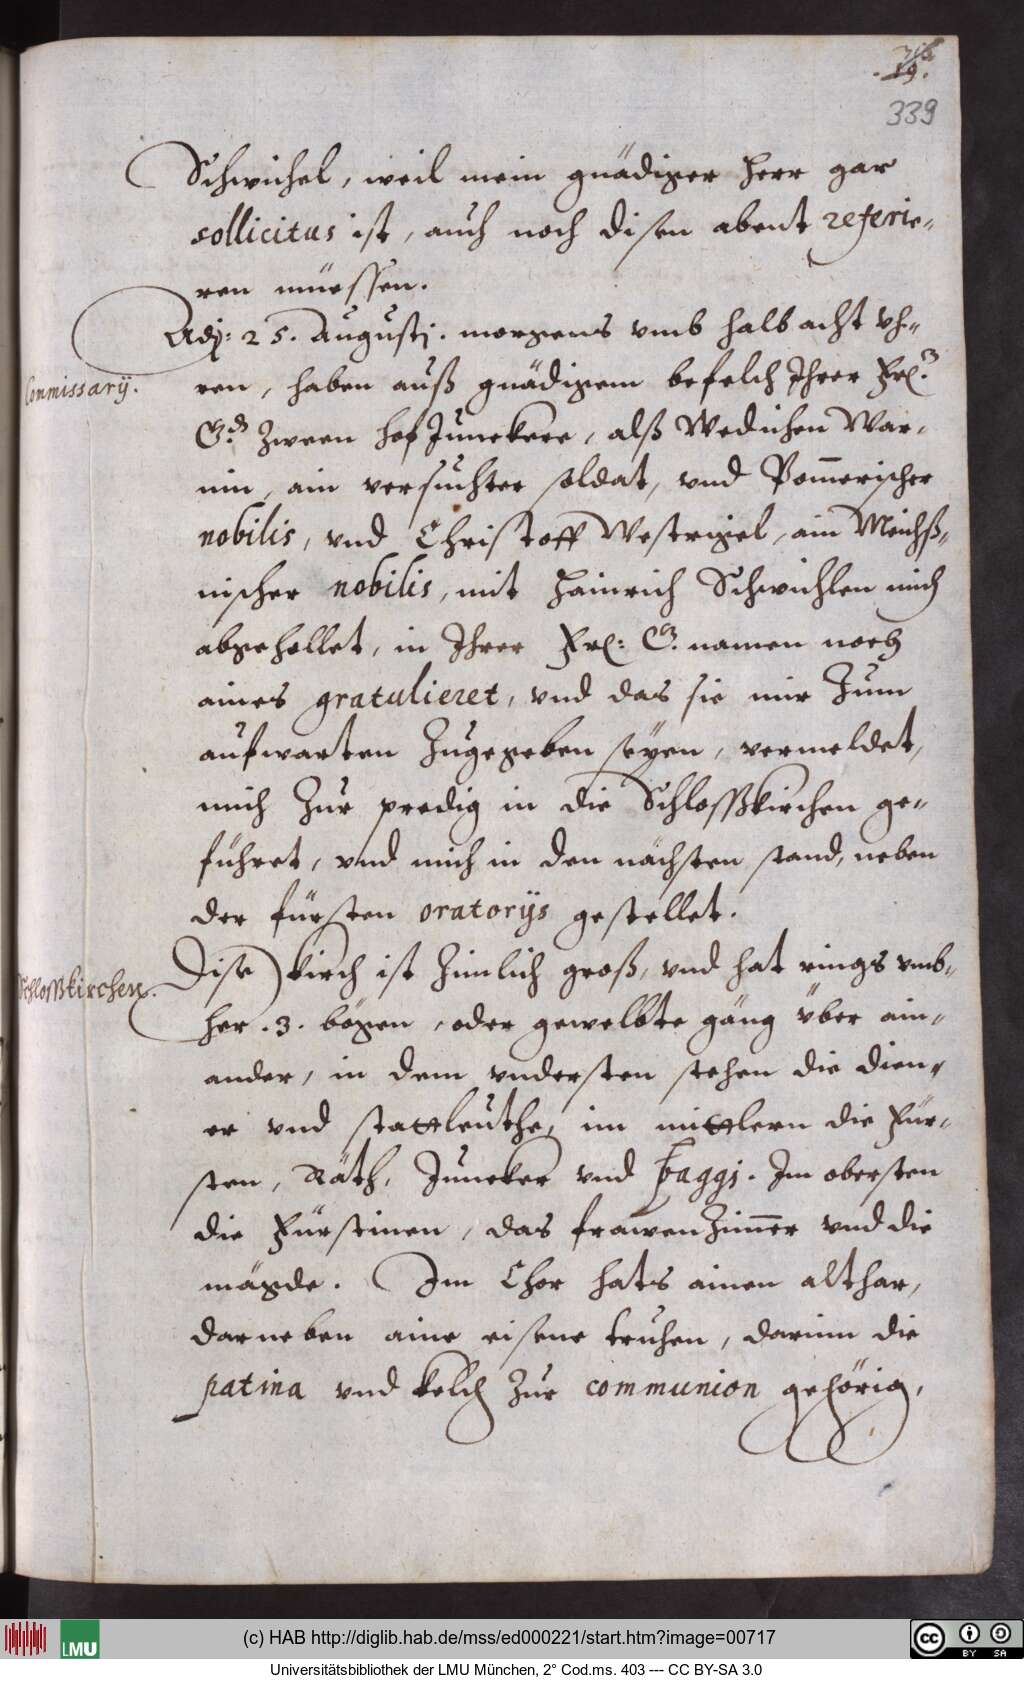 19.
339
Schwichel, weil mein gnädiger Herr gar
sollicitus ist, auch noch disen abent referie-
ren müessen.
Adj: 25. Augustj. morgens vmb halb acht vh-
Commissarij.
ren, haben auß gnädigem befelch Ihrer Frl:
G.d. zween hof Junckere, alß Wedichen War-
nin, ain versuchter soldat, vnd Pom̄erischer
nobilis, vnd Christoff Westrigel, ain Meichß-
nischer nobilis, mit Hainrich Schwichlen mich
abgehollet, in Ihrer Frl: G. namen noch
aines gratulieret, vnd das sie mir zum
aufwarten zugegeben seyen, vermeldet,
mich zur predig in die Schloßkirchen ge-
führet, vnd mich in den nächsten stand, neben
der fürsten oratorijs gestellet.
Schloßkirchen.
Dise kirch ist zimlich groß, vnd hat rings vmb-
her .3. bögen, oder gewelbte gäng über ain-
ander, in dem vndersten stehen die dien-
er vnd stattleuthe, im mittlern die Für-
sten, Räth, Juncker vnd paggj. Im obersten
die Fürstinen, das frawenzim̄er vnd die
mägde. Im Chor hats ainen althar,
darneben aine eisene truhen, darinn die
patina vnd kelch zur communion gehörig,
(c) HAB http://diglib.hab.de/mss/ed000221/start.htm?image=00717
LMU
BY SA
Universitätsbibliothek der LMU München, 2° Cod.ms. 403 --- CC BY-SA 3.0